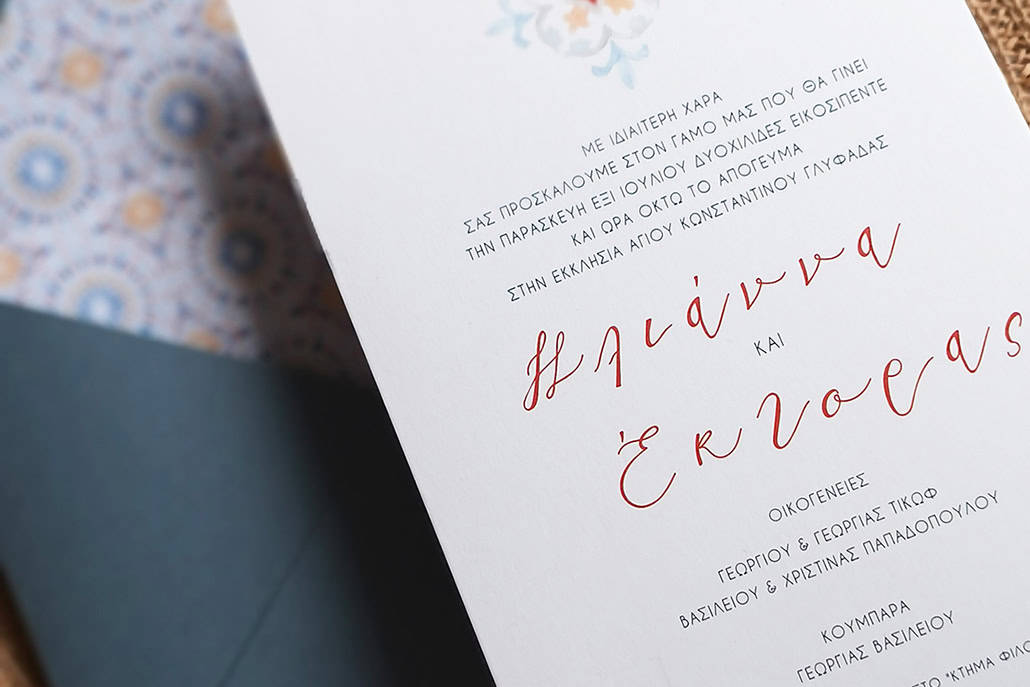 ΜΕ ΙΔΙΑΙΤΕΡΗ ΧΑΡΑ
ΣΑΣ ΠΡΟΣΚΑΛΟΥΜΕ ΣΤΟΝ ΓΑΜΟ ΜΑΣ ΠΟΥ ΘΑ ΓΙΝΕΙ
ΤΗΝ ΠΑΡΑΣΚΕΥΗ ΕΞΙ ΙΟΥΛΙΟΥ ΔΥΟΧΙΛΙΔΕΣ ΕΙΚΟΣΙΠΕΝΤΕ
ΚΑΙ ΩΡΑ ΟΚΤΩ ΤΟ ΑΠΟΓΕΥΜΑ
ΣΤΗΝ ΕΚΚΛΗΣΙΑ ΑΓΙΟΥ ΚΩΝΣΤΑΝΤΙΝΟΥ ΓΛΥΦΑΔΑΣ
Ηλιάννα
ΚΑΙ
Έκτορας
ΟΙΚΟΓΕΝΕΙΕΣ
ΓΕΩΡΓΙΟΥ & ΓΕΩΡΓΙΑΣ ΤΙΚΩΦ
ΒΑΣΙΛΕΙΟΥ & ΧΡΙΣΤΙΝΑΣ ΠΑΠΑΔΟΠΟΥΛΟΥ
ΚΟΥΜΠΑΡΑ
ΓΕΩΡΓΙΑΣ ΒΑΣΙΛΕΙΟΥ
ΣΤΟ "ΚΤΗΜΑ